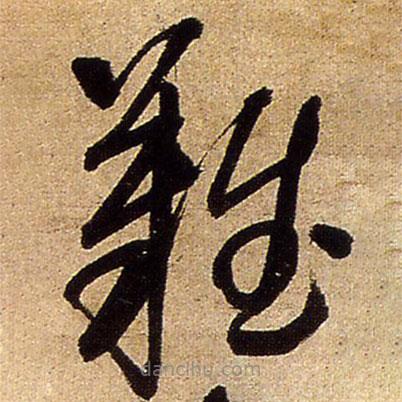 難
dancihu.com